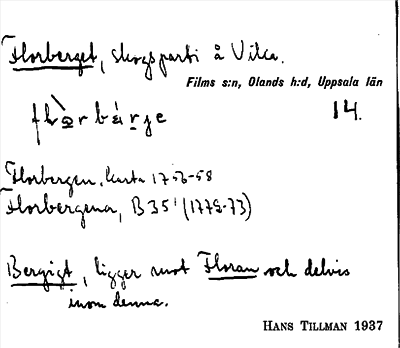 Florberget, skogsparti å Vilca.
Films s:n, Olands h:d, Uppsala län
14.
Florbergen, karta 1756-58
Florbergena, B35 (1772-73)
Bergigt, ligger mot Floran och delvis
inom denna.
HANS TILLMAN 1937